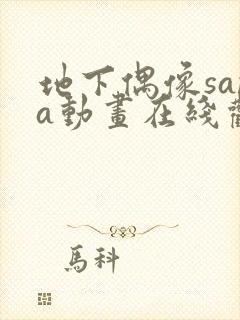 地下偶像sa
a動畫在綫
馬科